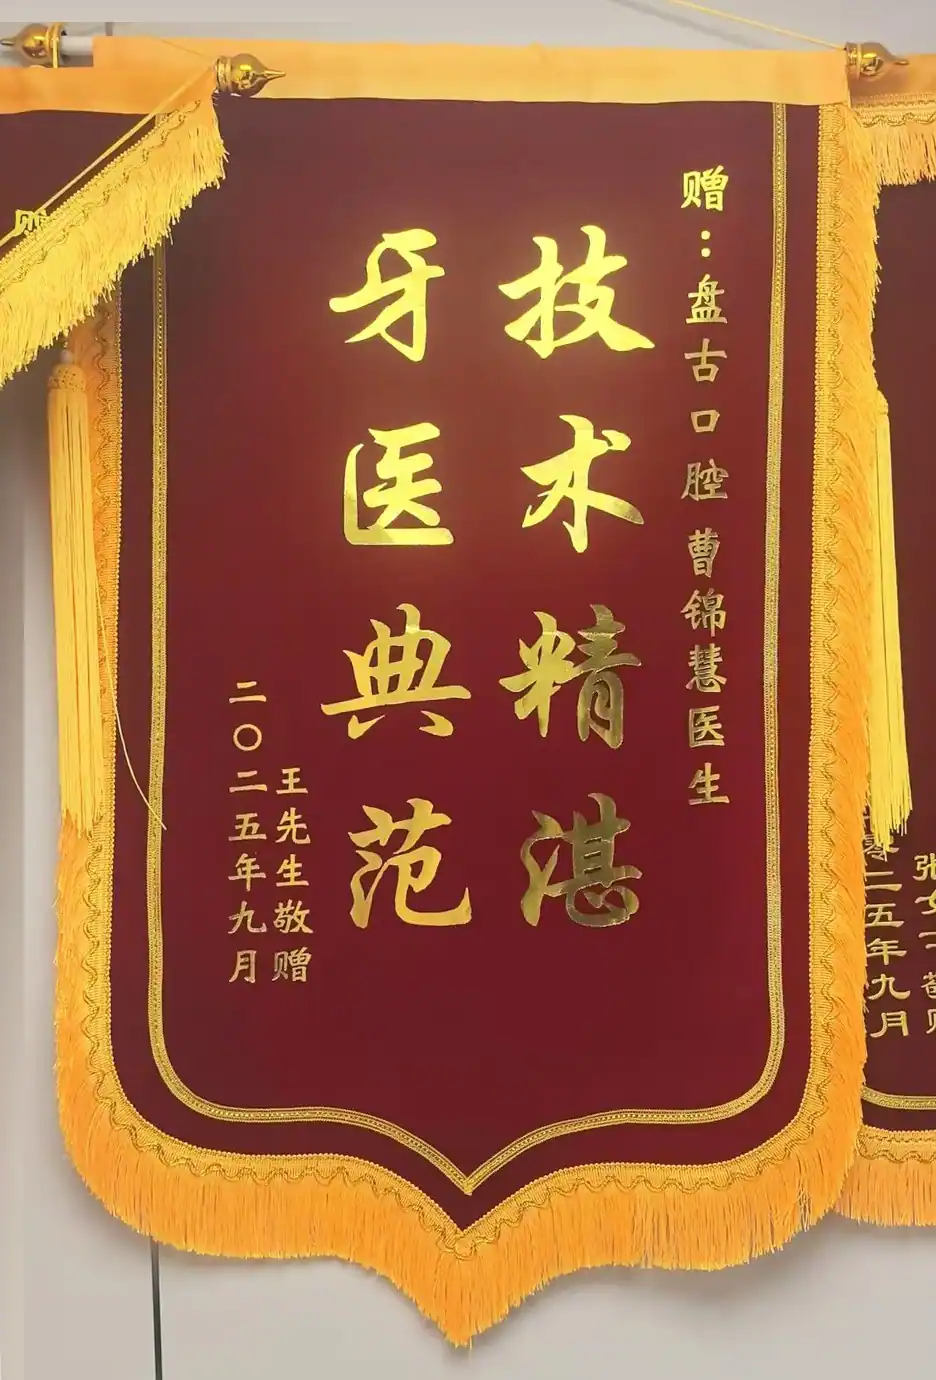 赠：盘古口腔曹锦慧医生
技术精湛
牙医典范
王先生敬赠
二〇二五年九月
赠
张女士
零二五年九月